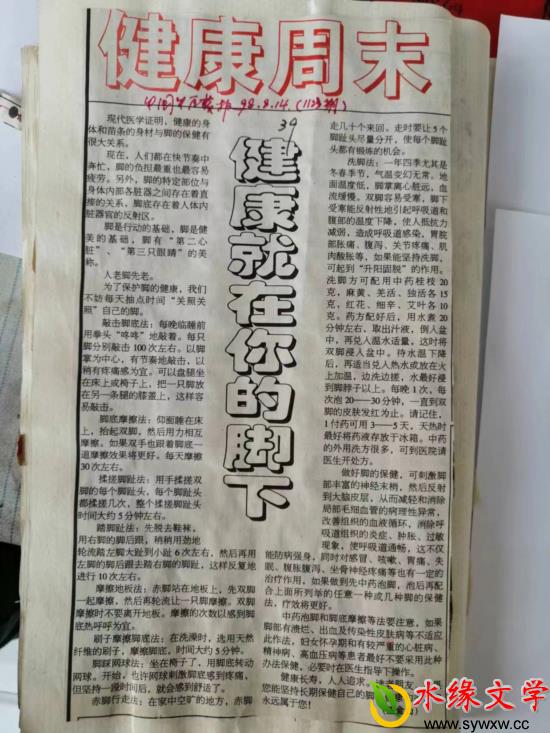 健康周末
98.8.14.(1123期)
39
健康就在你的脚下
现代医学证明，健康的身
体和苗条的身材与脚的保健有
很大关系。
现在，人们都在快节奏中
奔忙，脚的负担最重也最容易
疲劳。另外，脚的特定部位与
身体内部各脏器之间存在着直
接的关系，脚底存在着人体内
脏器官的反射区。
脚是行动的基础，脚是健
美的基础，脚有“第二心
脏”、“第三只眼睛”的美
称。
人老脚先老。
为了保护脚的健康，我们
不妨每天抽点时间“关照关
照”自己的脚。
敲击脚底法：每晚临睡前
用拳头“咚咚”地敲着。每只
脚分别敲击100次左右。以脚
掌为中心，有节奏地敲击，以
稍有疼痛感为宜。可以盘腿坐
在床上或椅子上，把一只脚放
在另一条腿的膝盖上，这样容
易敲击。
脚底摩擦法：仰面睡在床
上，抬起双脚，然后用力相互
摩擦。如果双手也跟着脚底一
道摩擦效果将更好。每天摩擦
30次左右。
揉搓脚趾法：用手揉搓双
脚的每个脚趾头，每个脚趾头
都揉搓几次，整个揉搓脚趾头
时间大约5分钟左右。
踏脚趾法：先脱去鞋袜，
用右脚的脚后跟，稍稍用劲地
轮流踏左脚大趾到小趾6次左右，然后再用
左脚的脚后跟去踏右脚的脚趾，这样反复地
进行10次左右。
摩擦地板法：赤脚站在地板上，先双脚
一起摩擦，然后再轮流让一只脚摩擦。双脚
摩擦时不要离开地板。摩擦的次数以感到脚
底热呼呼为宜。
刷子摩擦脚底法：在洗澡时，选用天然
纤维的刷子，摩擦脚底，时间大约5分钟。
脚踩网球法：坐在椅子了，用脚底转动
网球。开始，也许网球刺激脚底感到疼痛，
但坚持一段时间后，就会感到舒适了。
赤脚行走法：在家中空旷的地方，赤脚
走几十个来回。走时要让5个
脚趾头尽量分开，使每个脚趾
头都有锻炼的机会。
洗脚法：一年四季尤其是
冬春季节，气温变幻无常，地
面温度低，脚掌离心脏远，血
流缓慢。双脚容易受寒，脚下
受寒能反射性地引起呼吸道和
腹部的温度下降，使人抵抗力
减弱，造成呼吸道感染，胃脘
部胀痛、腹泻、关节疼痛、肌
肉酸胀等，如果能坚持洗脚，
可起到“升阳固脱”的作用。
洗脚方可配用中药桂枝20
克，麻黄、羌活、独活各15
克，红花、细辛、艾叶各10
克。药方配好后，用水煮20
分钟左右，取出汁液，倒人盆
中，再兑人温水适量，这时将
双脚浸人盆中。待水温下降
后，再适当兑人热水或放在火
上加温，边洗边搓，水最好浸
到脚脖子以上。每晚1次，每
次泡20——30分钟，一直到双
脚的皮肤发红为止。请记住，
1付药可用3—5天，天热时
最好将药液存放于冰箱。中药
的外用洗方很多，可到医院请
医生开处方。
做好脚的保健，可刺激脚
部丰富的神经末梢，然后反射
到大脑皮层，从而减轻和消除
局部毛细血管的病理性异常，
改善组织的血液循环，消除呼
吸道组织的炎症、肿胀、过敏
现象，使呼吸道通畅，这不仅
能防病强身，同时对感冒、咳嗽、胃痛、失
眠、腹胀腹泻、坐骨神经疼痛等也有一定的
治疗作用，如果做到先中药泡脚，泡后再配
合上面所列举的任意一种或几种脚的保健
法，疗效将更好。
中药泡脚和脚底摩擦等法要注意，如果
脚部有溃烂、出血及传染性皮肤病等不适应
此作法，妇女怀孕期和有较严重的心脏病、
精神病、高血压病等患者最好不要采用此种
办法保健，必要时在医生指导下操作。
健康长寿，人人追求。
您能坚持长期保健自己的脚
永远属于您！
水缘文学
www.sywxw.cc